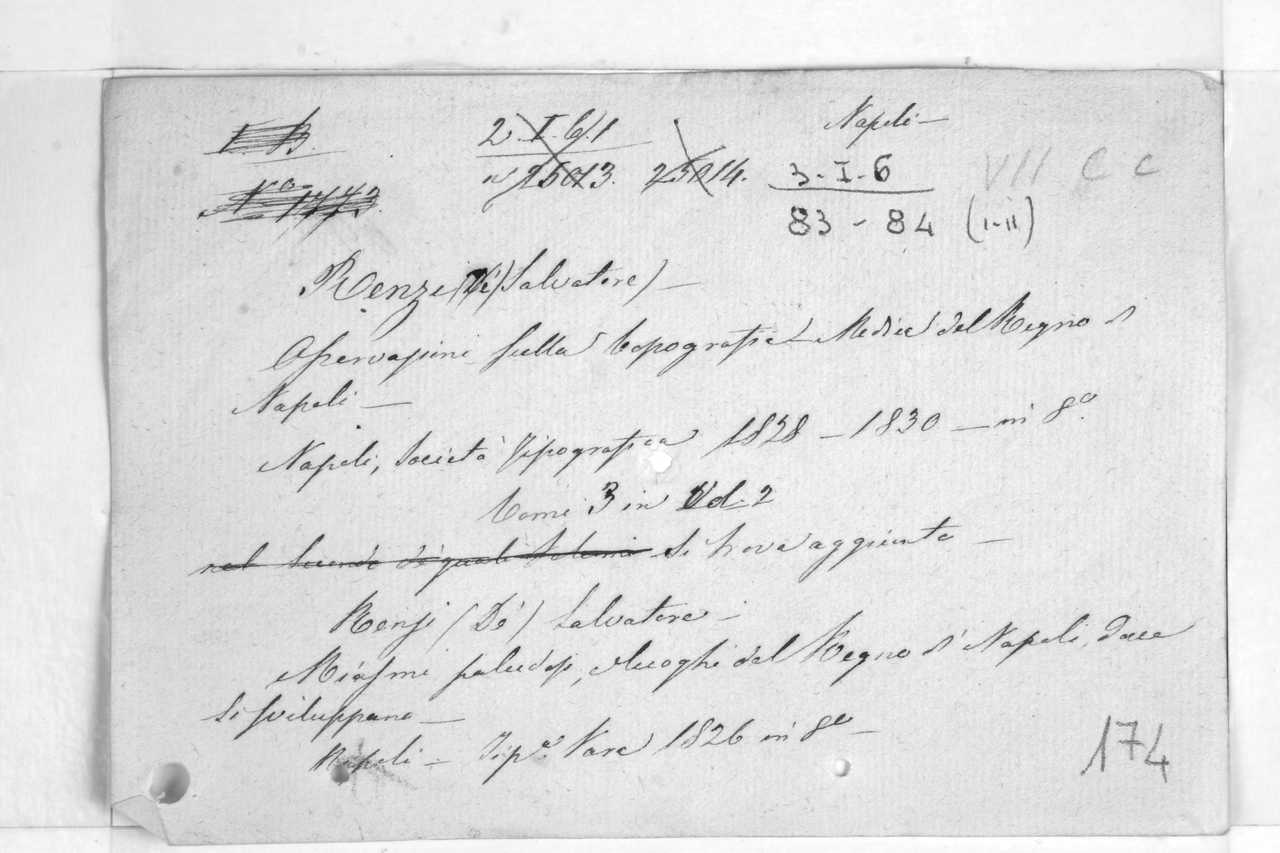 2. I. 6.1
Napoli —
n.° 25013. 25014.
3-I-6
VII C c
83 - 84 (I-II)
Renzi (De) Salvatore) —
Osservazioni sulla topografia Medica del Regno di
Napoli —
Napoli, Società Tipografica 1828 — 1830 — in 8.°
tomi 3 in Vol. 2
nel secondo de' quali si trova aggiunto —
Renzi (De) Salvatore —
Miasmi paludosi, e luoghi del Regno di Napoli, dove
si sviluppano —
Napoli — Tip.a 1826 in 8° —
174